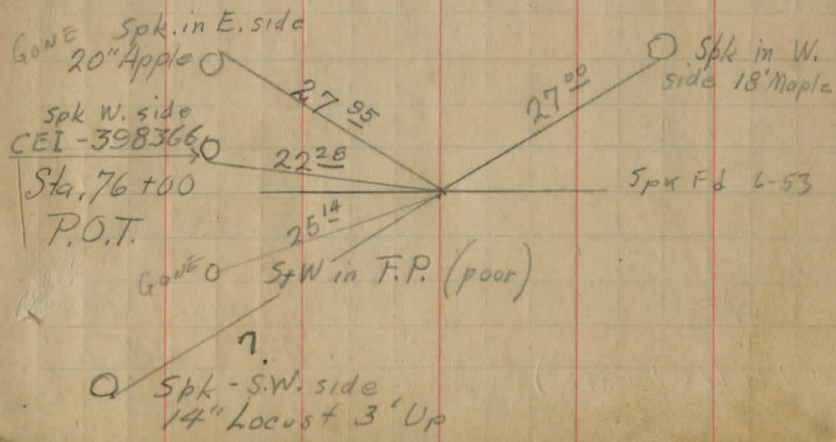 GONE Spk. in E. side
20" Apple
27 95
27 00
Spk in W.
side 18' Maple
Spk W. side
CEI - 398366
22 28
Sta. 76 + 00
P.O.T.
Spk Fd 6-53
25 14
GONE
S+W in F.P. (poor)
?
Spk - S.W. side
14" Locust 3' Up